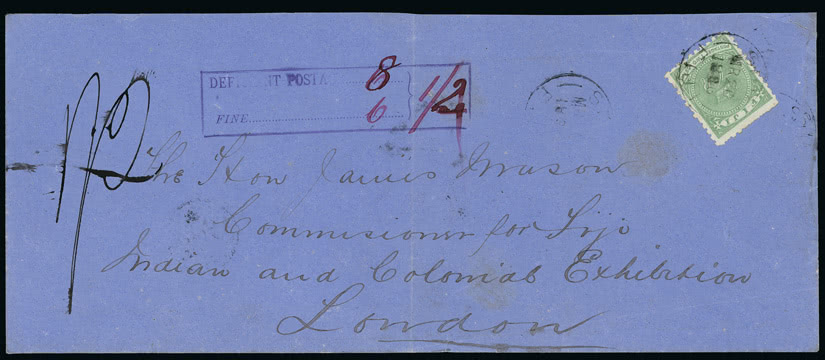 DEFICIENT POSTA 8
FINE 6
1/2
1/2
FIJI
The Hon James Mason
Commisioner for Fiji
Indian and Colonial Exhibition
London